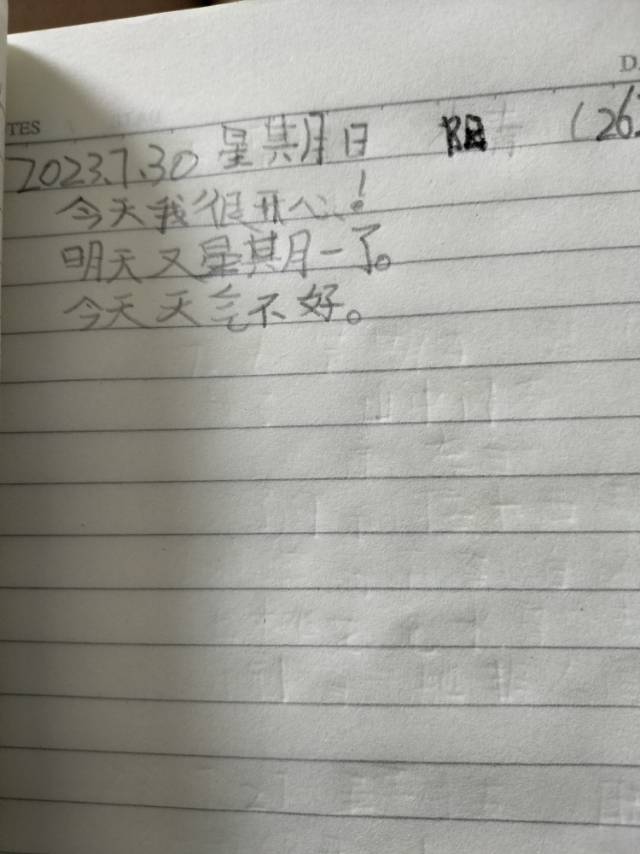 TES
2023.7.30 星期日 阳 (26
今天我很开心!
明天又星期一了。
今天天气不好。